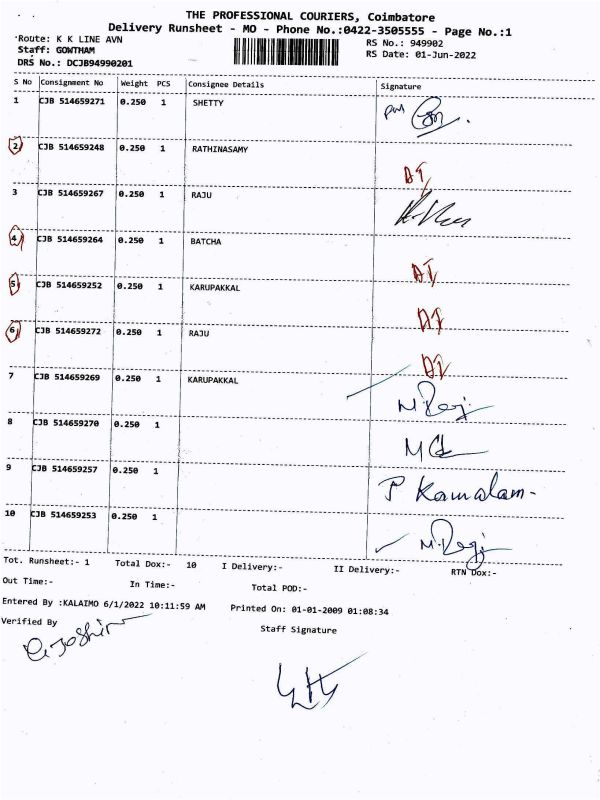 THE PROFESSIONAL COURIERS, Coimbatore
Delivery Runsheet - MO - Phone No.:0422-3505555 - Page No.:1
Route: K K LINE AVN
RS No.: 949902
Staff: GOWTHAM
RS Date: 01-Jun-2022
DRS No.: DCJB94990201
S No Consignment No Weight PCS Consignee Details Signature
1 CJB 514659271 0.250 1 SHETTY
2 CJB 514659248 0.250 1 RATHINASAMY
3 CJB 514659267 0.250 1 RAJU
4 CJB 514659264 0.250 1 BATCHA
5 CJB 514659252 0.250 1 KARUPAKKAL
6 CJB 514659272 0.250 1 RAJU
7 CJB 514659269 0.250 1 KARUPAKKAL
8 CJB 514659270 0.250 1
9 CJB 514659257 0.250 1
P Kamalam-
10 CJB 514659253 0.250 1
Tot. Runsheet:- 1 Total Dox:- 10 I Delivery:- II Delivery:- RTN Dox:-
Out Time:- In Time:- Total POD:-
Entered By :KALAIMO 6/1/2022 10:11:59 AM Printed On: 01-01-2009 01:08:34
Verified By
Staff Signature